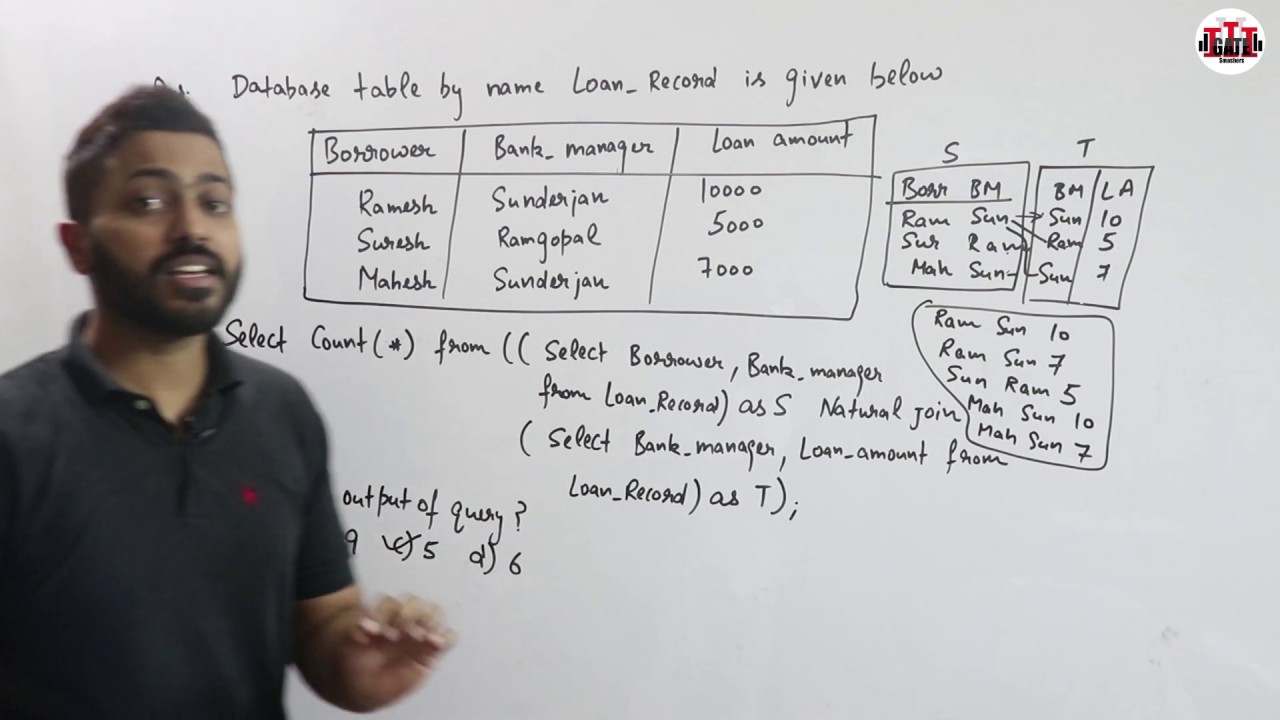 Database table by name Loan_Record is given below
Borrower Bank_manager Loan amount
Ramesh Sunderjan 10000
Suresh Ramgopal 5000
Mahesh Sunderjan 7000
S T
Borr BM BM LA
Ram Sun Sun 10
Sur Ram Ram 5
Mah Sun Sun 7
Ram Sun 10
Ram Sun 7
Sun Ram 5
Mah Sun 10
Mah Sun 7
Select Count(*) from (( Select Borrower, Bank_manager
from Loan_Record) as S Natural join
( Select Bank_manager, Loan_amount from
Loan_Record) as T);
output of query?
9 c) 5 d) 6
GATE
Smashers